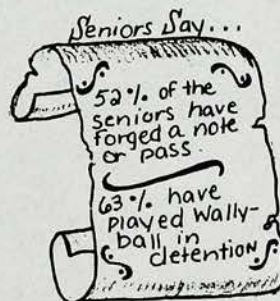 Seniors Say...
52% of the
seniors have
forged a note
or pass.
63% have
played Wally-
ball in
detention